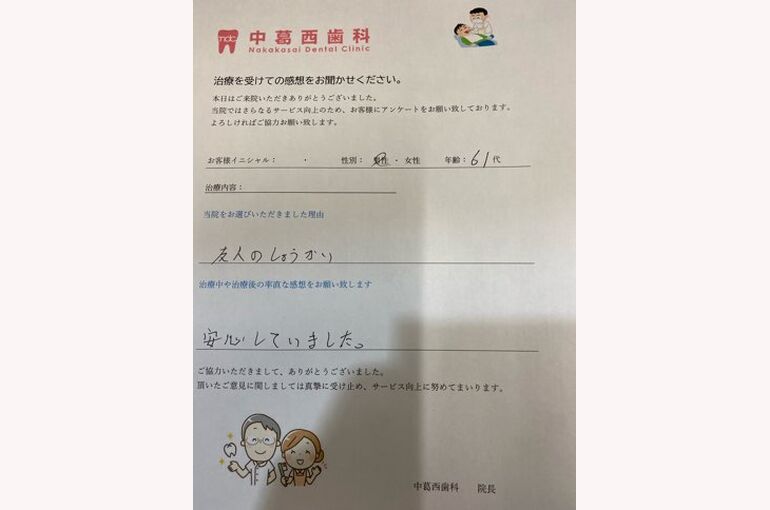 mdc 中葛西歯科
Nakakasai Dental Clinic
治療を受けての感想をお聞かせください。
本日はご来院いただきありがとうございました。
当院ではさらなるサービス向上のため、お客様にアンケートをお願い致しております。
よろしければご協力お願い致します。
お客様イニシャル： ・ 性別：男性・女性 年齢：61代
治療内容：
当院をお選びいただきました理由
友人のしょうかい
治療中や治療後の率直な感想をお願い致します
安心していました。
ご協力いただきまして、ありがとうございました。
頂いたご意見に関しましては真摯に受け止め、サービス向上に努めてまいります。
中葛西歯科 院長